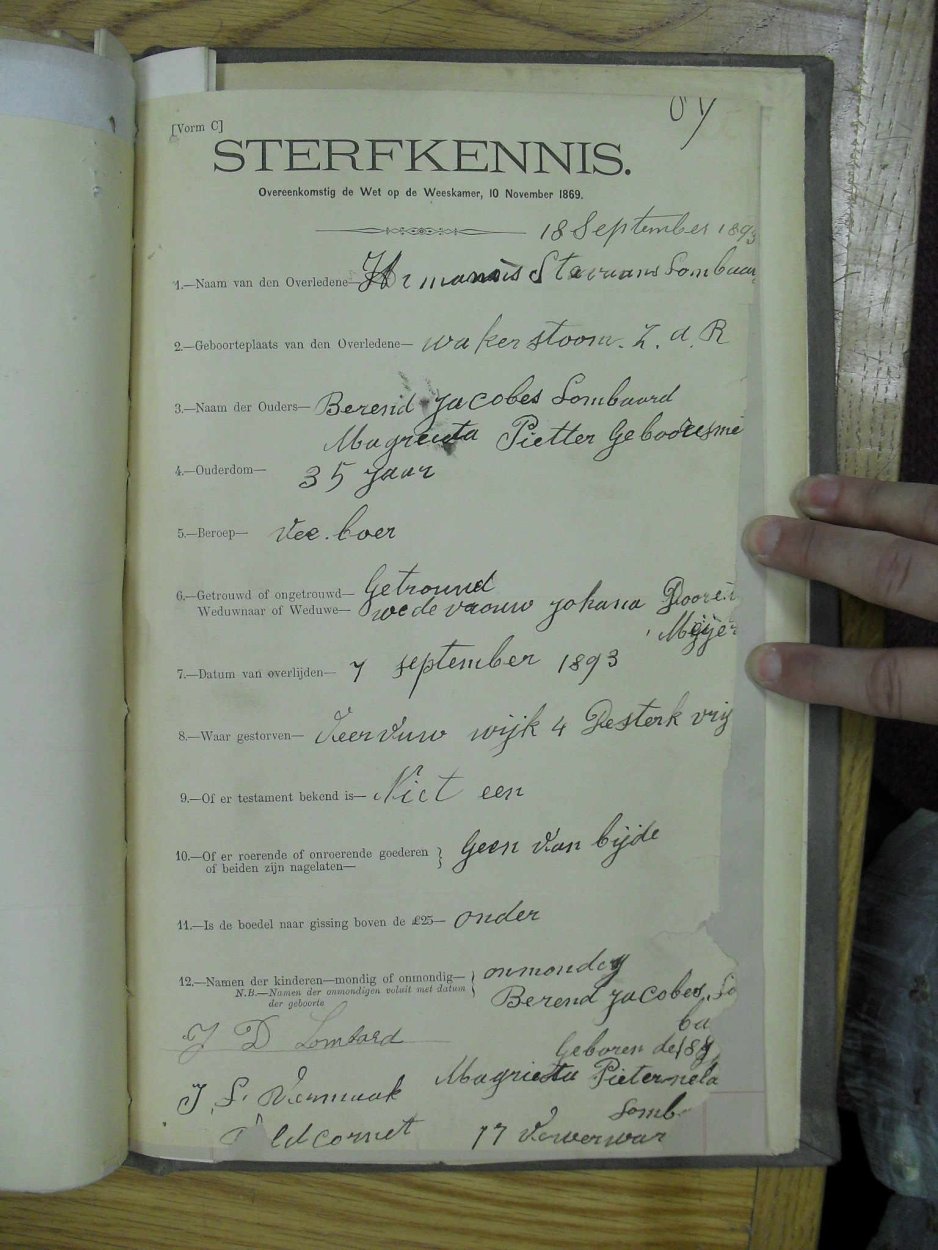 [Vorm C]
STERFKENNIS.
Overeenkomstig de Wet op de Weeskamer, 10 November 1869.
18 September 1893
1.—Naam van den Overledene— Lombaar
2.—Geboorteplaats van den Overledene— wakerstoom. Z. d. R
3.—Naam der Ouders— Berend Jacobes Lombaard
Magrieta Pietter Geboore
4.—Ouderdom— 35 jaar
5.—Beroep— Vee. boer
6.—Getrouwd of ongetrouwd— Getrouwd
Weduwnaar of Weduwe— wedevrouw Johana
Meijer
7.—Datum van overlijden— 7 september 1893
8.—Waar gestorven— wijk 4
9.—Of er testament bekend is— Niet een
10.—Of er roerende of onroerende goederen } Geen van bijde
of beiden zijn nagelaten—
11.—Is de boedel naar gissing boven de £25— onder
12.—Namen der kinderen—mondig of onmondig— { onmondig
N.B.—Namen der onmondigen voluit met datum
der geboorte
Berend Jacobes. Lo
ba
J D Lombard
Geboren de 18
Magrieta Pieternela
J. S. Vermaak
Lomb
ldcornet